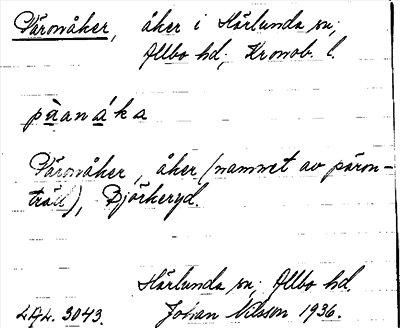 Päronåker, åker i Härlunda sn;
Allbo hd; Kronob. l.
päanåka
Päronåker, åker (namnet av päron-
träd), Björkeryd.
Härlunda sn; Allbo hd.
Johan Nilsson 1936.
LAL. 3043.